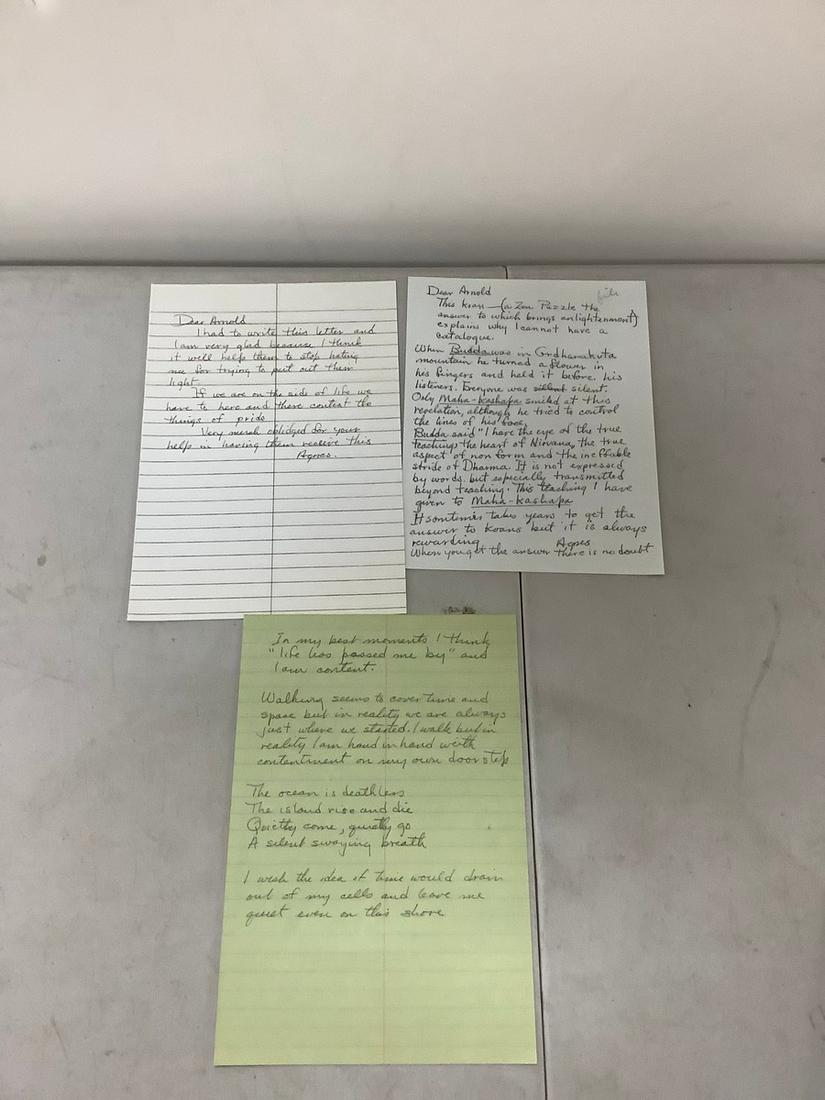 Dear Arnold
I had to write this letter and
I am very glad because I think
it will help them to stop hating
me for trying to put out them
light.
If we are on the side of life we
have to here and there contest the
things of pride
Very much obliged for your
help in having them receive this
Agnes.
Dear Arnold
This koan – (a Zen Puzzle the
answer to which brings enlightenment)
explains why I cannot have a
catalogue.
When Budda was in Grdhanakuta
mountain he turned a flower in
his fingers and held it before his
listeners. Everyone was silent.
Only Maha-Kashapa smiled at this
revelation, although he tried to control
the lines of his face.
Budda said "I have the eye of the true
teaching, the heart of Nirvana, the true
aspect of non form and the ineffable
stride of Dharma. It is not expressed
by words, but especially transmitted
beyond teaching. This teaching I have
given to Maha-Kashapa
It sometimes takes years to get the
answer to koans but it is always
rewarding
Agnes
When you get the answer there is no doubt
In my best moments I think
"life has passed me by" and
I am content.
Walking seems to cover time and
space but in reality we are always
just where we started. I walk but in
reality I am hand in hand with
contentment on my own door step
The ocean is deathless
The island rise and die
Quietly come, quietly go
A silent swaying breath
I wish the idea of time would drain
out of my cells and leave me
quiet even on this shore